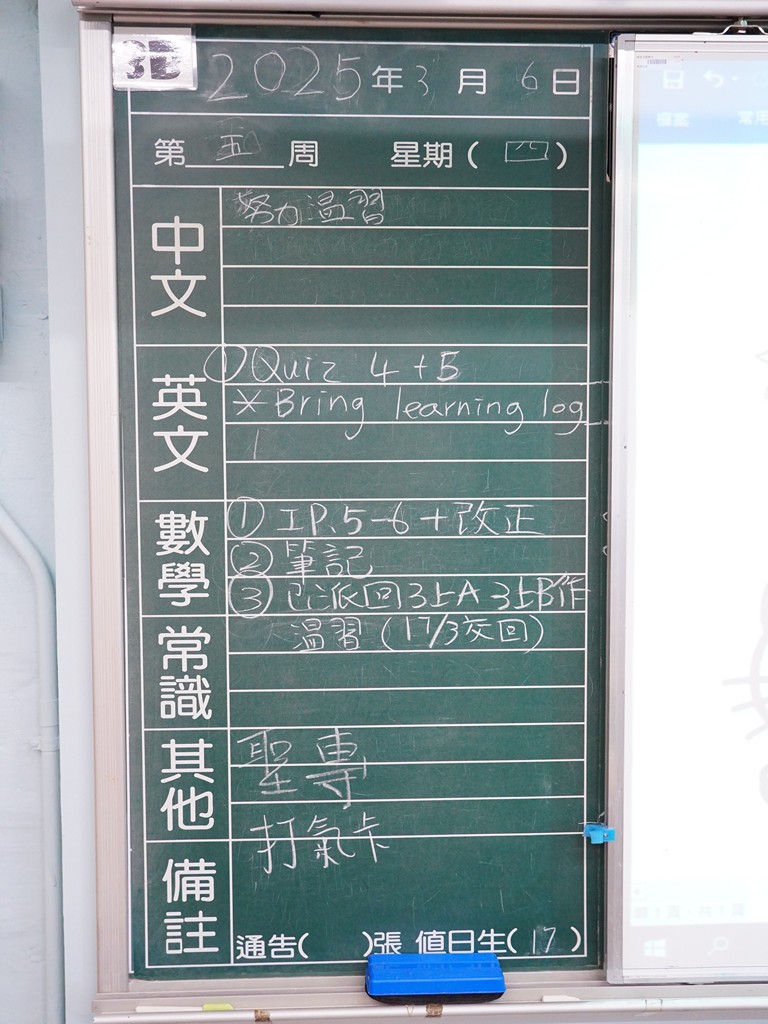 3B
2025年3月6日
第五周 星期(四)
中文
努力溫習
英文
①Quiz 4+5
*Bring learning log
數學
① IP.5-6+改正
② 筆記
③ 已派回3上A 3上B作
溫習(17/3交回)
常識
其他
聖專
打氣卡
備註
通告( )張 值日生(17)
檔案 常用